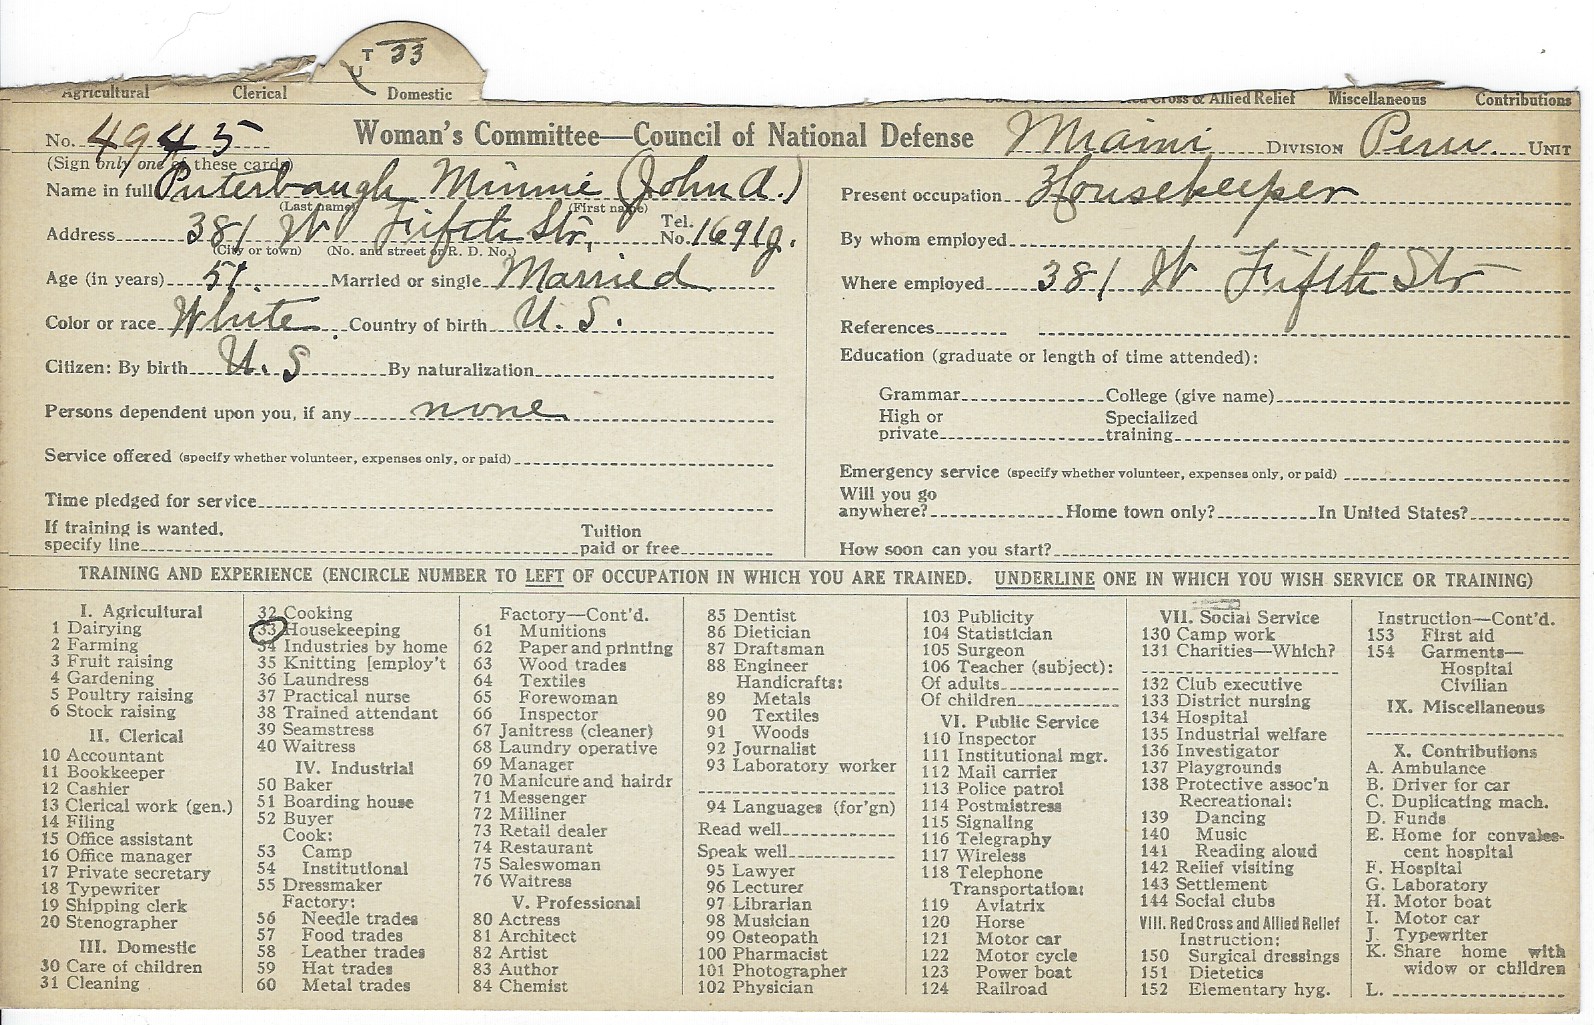 T 33
U
Agricultural Clerical Domestic Red Cross & Allied Relief Miscellaneous Contributions
No. 4945 Woman's Committee—Council of National Defense Miami DIVISION Peru UNIT
(Sign only one of these cards)
Name in full Puterbaugh Minnie (John A.)
(Last name) (First name)
Address 381 W Fifth Str, Tel. No. 1691J.
(City or town) (No. and street or R. D. No.)
Age (in years) 51. Married or single Married
Color or race White Country of birth U. S.
Citizen: By birth U. S By naturalization
Persons dependent upon you, if any none
Service offered (specify whether volunteer, expenses only, or paid)
Time pledged for service
If training is wanted, Tuition
specify line paid or free
Present occupation Housekeeper
By whom employed
Where employed 381 W Fifth Str
References
Education (graduate or length of time attended):
Grammar College (give name)
High or Specialized
private training
Emergency service (specify whether volunteer, expenses only, or paid)
Will you go
anywhere? Home town only? In United States?
How soon can you start?
TRAINING AND EXPERIENCE (ENCIRCLE NUMBER TO LEFT OF OCCUPATION IN WHICH YOU ARE TRAINED. UNDERLINE ONE IN WHICH YOU WISH SERVICE OR TRAINING)
I. Agricultural
1 Dairying
2 Farming
3 Fruit raising
4 Gardening
5 Poultry raising
6 Stock raising
II. Clerical
10 Accountant
11 Bookkeeper
12 Cashier
13 Clerical work (gen.)
14 Filing
15 Office assistant
16 Office manager
17 Private secretary
18 Typewriter
19 Shipping clerk
20 Stenographer
III. Domestic
30 Care of children
31 Cleaning
32 Cooking
33 Housekeeping
34 Industries by home
35 Knitting [employ't
36 Laundress
37 Practical nurse
38 Trained attendant
39 Seamstress
40 Waitress
IV. Industrial
50 Baker
51 Boarding house
52 Buyer
Cook:
53 Camp
54 Institutional
55 Dressmaker
Factory:
56 Needle trades
57 Food trades
58 Leather trades
59 Hat trades
60 Metal trades
Factory—Cont'd.
61 Munitions
62 Paper and printing
63 Wood trades
64 Textiles
65 Forewoman
66 Inspector
67 Janitress (cleaner)
68 Laundry operative
69 Manager
70 Manicure and hairdr
71 Messenger
72 Milliner
73 Retail dealer
74 Restaurant
75 Saleswoman
76 Waitress
V. Professional
80 Actress
81 Architect
82 Artist
83 Author
84 Chemist
85 Dentist
86 Dietician
87 Draftsman
88 Engineer
Handicrafts:
89 Metals
90 Textiles
91 Woods
92 Journalist
93 Laboratory worker
94 Languages (for'gn)
Read well
Speak well
95 Lawyer
96 Lecturer
97 Librarian
98 Musician
99 Osteopath
100 Pharmacist
101 Photographer
102 Physician
103 Publicity
104 Statistician
105 Surgeon
106 Teacher (subject):
Of adults
Of children
VI. Public Service
110 Inspector
111 Institutional mgr.
112 Mail carrier
113 Police patrol
114 Postmistress
115 Signaling
116 Telegraphy
117 Wireless
118 Telephone
Transportation:
119 Aviatrix
120 Horse
121 Motor car
122 Motor cycle
123 Power boat
124 Railroad
VII. Social Service
130 Camp work
131 Charities—Which?
132 Club executive
133 District nursing
134 Hospital
135 Industrial welfare
136 Investigator
137 Playgrounds
138 Protective assoc'n
Recreational:
139 Dancing
140 Music
141 Reading aloud
142 Relief visiting
143 Settlement
144 Social clubs
VIII. Red Cross and Allied Relief
Instruction:
150 Surgical dressings
151 Dietetics
152 Elementary hyg.
Instruction—Cont'd.
153 First aid
154 Garments—
Hospital
Civilian
IX. Miscellaneous
X. Contributions
A. Ambulance
B. Driver for car
C. Duplicating mach.
D. Funds
E. Home for convales-
cent hospital
F. Hospital
G. Laboratory
H. Motor boat
I. Motor car
J. Typewriter
K. Share home with
widow or children
L.